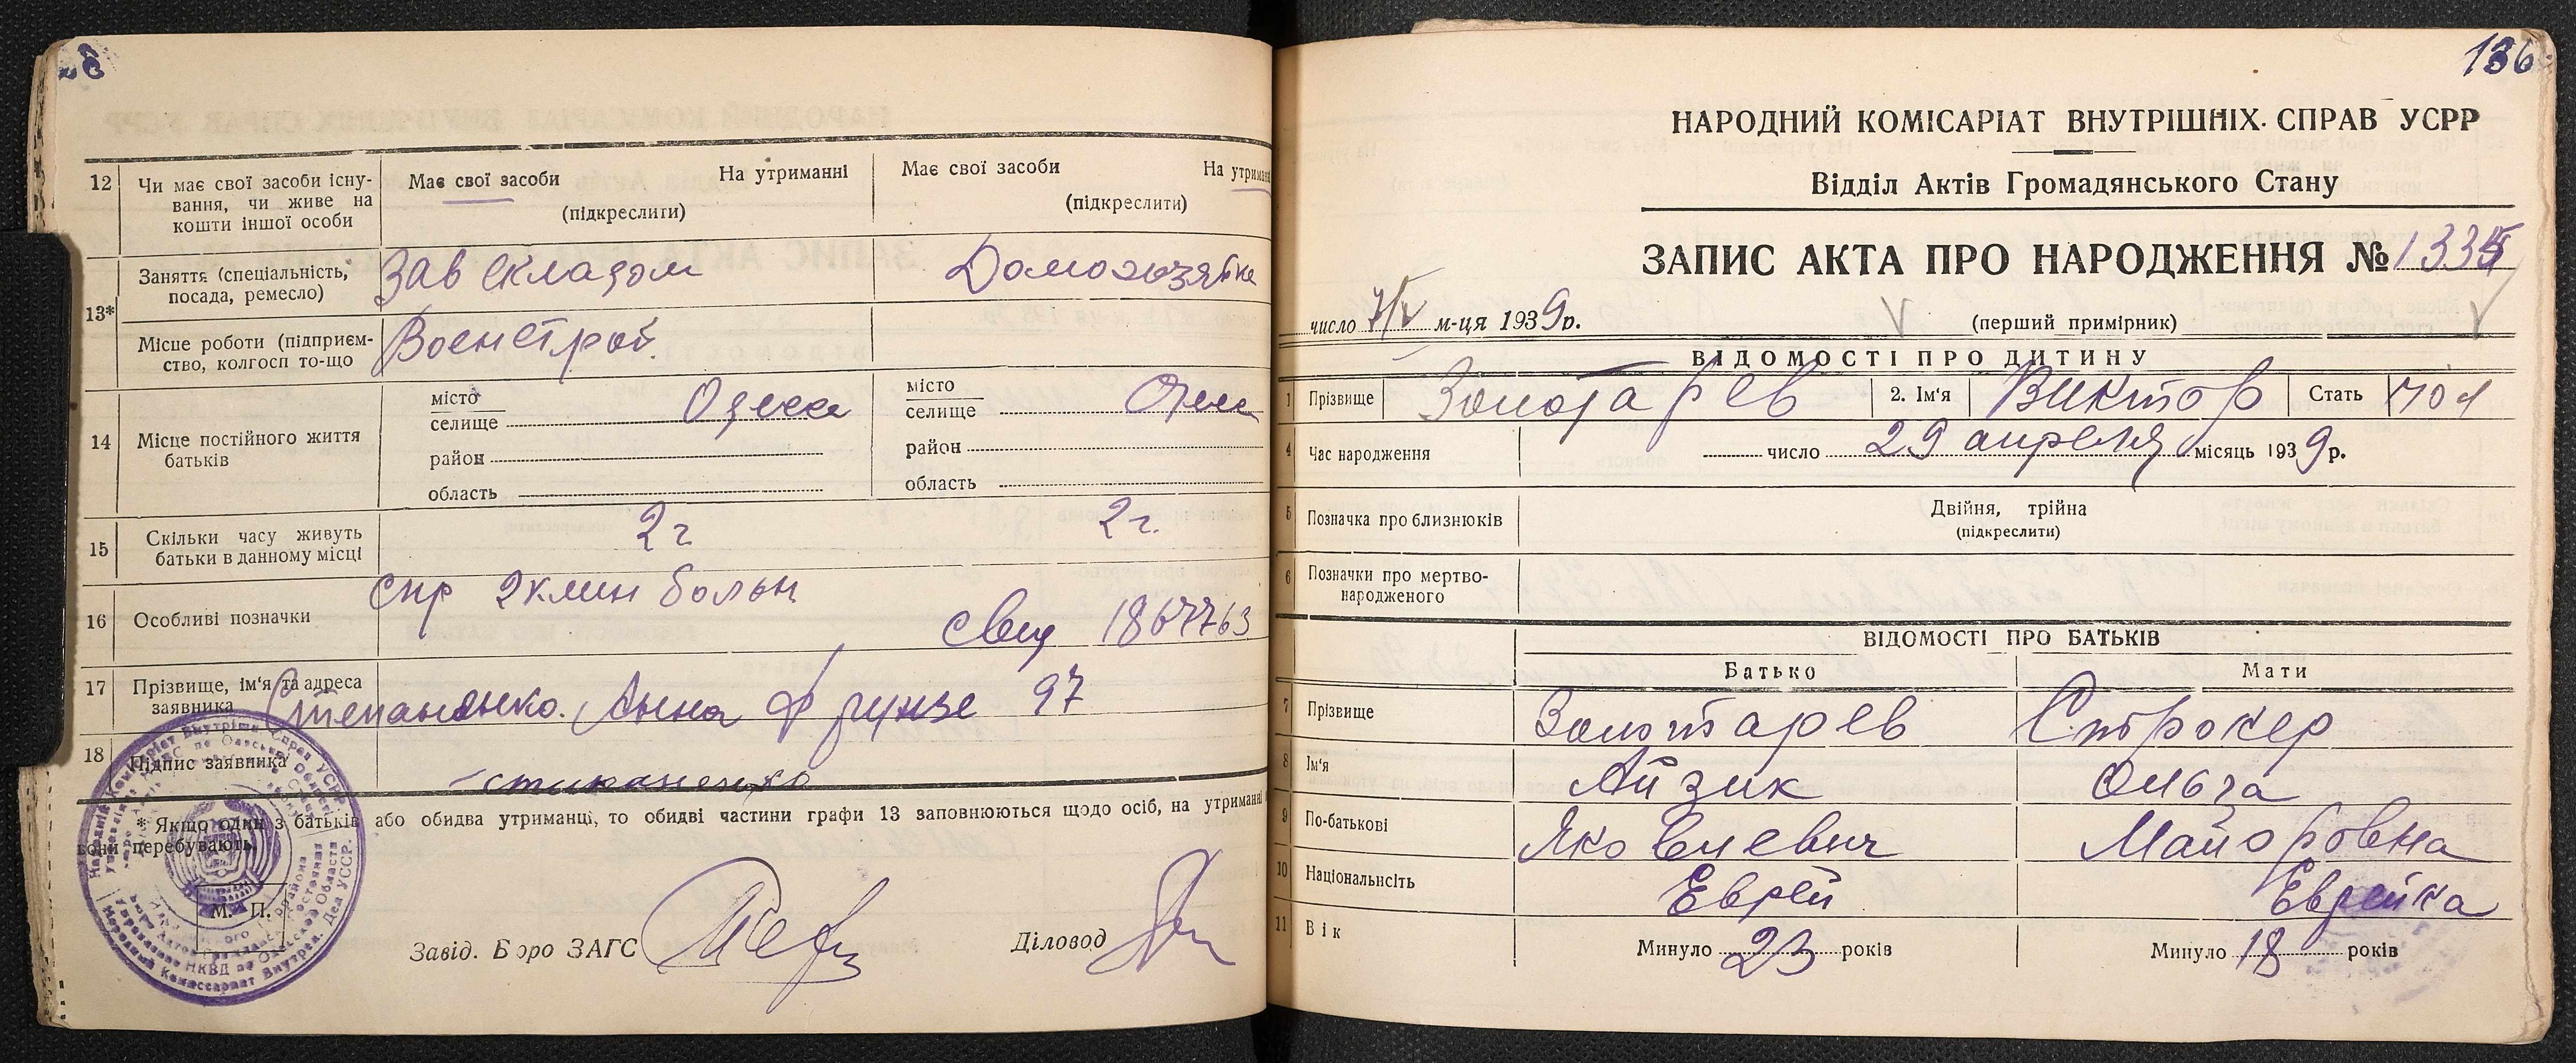 12 Чи має свої засоби існу-
вання, чи живе на
кошти іншої особи
Має свої засоби На утриманні
(підкреслити)
Має свої засоби На утриман
(підкреслити)
13* Заняття (спеціальність,
посада, ремесло)
Зав складом
Домохозяйка
Місце роботи (підприєм-
ство, колгосп то-що
Военстрой.
14 Місце постійного життя
батьків
місто
селище Одесса
район
область
місто
селище
район
область
15 Скільки часу живуть
батьки в данному місці
2 г
2 г.
16 Особливі позначки
спр 2 клин больн
свид 1867763
17 Прізвище, ім'я та адреса
заявника
Степаненко. Анна Фрунзе 97
18 Підпис заявника
* Якщо один з батьків або обидва утриманці, то обидві частини графи 13 заповнюються щодо осіб, на утриманні
вони перебувають.
М. П.
Завід. Бюро ЗАГС
Діловод
136
НАРОДНИЙ КОМІСАРІАТ ВНУТРІШНІХ СПРАВ УСРР
Відділ Актів Громадянського Стану
ЗАПИС АКТА ПРО НАРОДЖЕННЯ № 1335
число 7/V м-ця 1939р. (перший примірник)
ВІДОМОСТІ ПРО ДИТИНУ
1 Прізвище Золотарев 2. Ім'я Виктор Стать
4 Час народження число 29 апреля місяць 1939р.
5 Позначка про близнюків
Двійня, трійна
(підкреслити)
6 Позначки про мертво-
народженого
ВІДОМОСТІ ПРО БАТЬКІВ
Батько Мати
7 Прізвище Золотарев Строкер
8 Ім'я Айзик Ольга
9 По-батькові Яковлевич Майоровна
10 Національність Еврей Еврейка
11 Вік Минуло 23 років Минуло 18 років